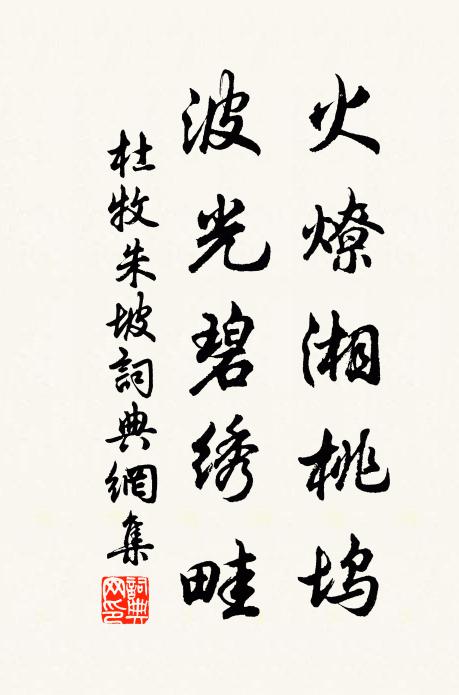 火燎湘桃坞
波光碧绣畦
杜牧朱坡詞典網集
詞典網印